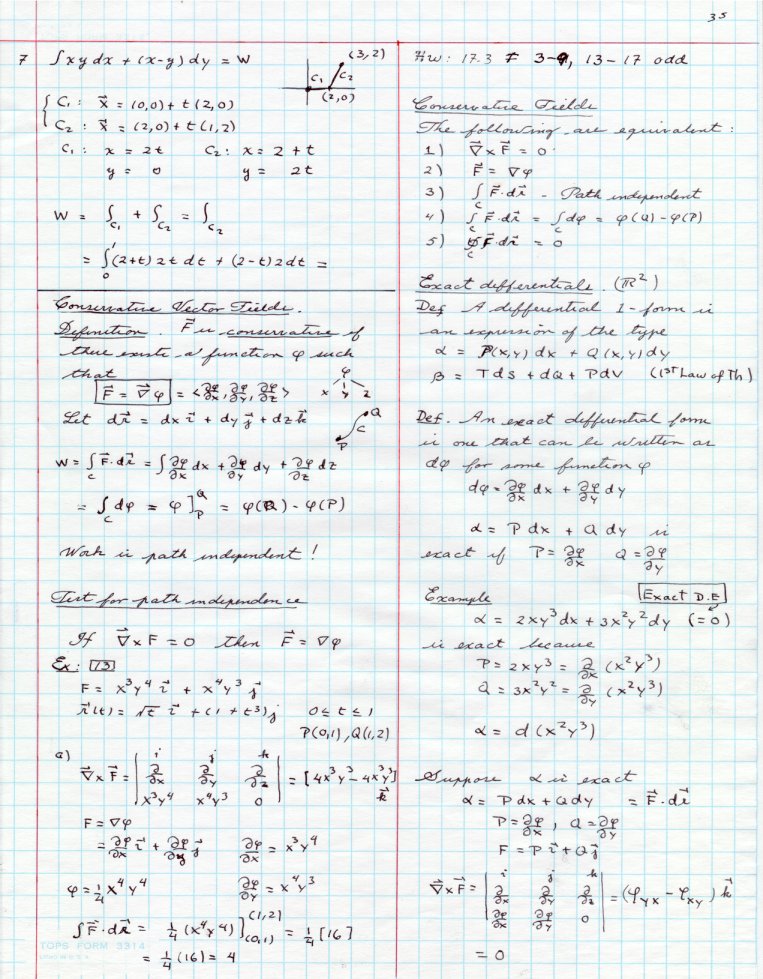 35
7 ∫xy dx + (x-y) dy = W
(3,2)
C₁ C₂
(2,0)
C₁: x⃗ = (0,0) + t(2,0)
C₂: x⃗ = (2,0) + t(1,2)
C₁: x = 2t C₂: x = 2 + t
y = 0 y = 2t
W = ∫_C₁ + ∫_C₂ = ∫_C₂
= ∫₀¹ (2+t) 2t dt + (2-t) 2dt =
Conservative Vector Fields.
Definition. F⃗ is conservative if
there exists a function φ such
that
F⃗ = ∇⃗φ = <∂φ/∂x, ∂φ/∂y, ∂φ/∂z>
φ
x y z
Let dr⃗ = dx i⃗ + dy j⃗ + dz k⃗
Q
C
P
W = ∫_C F⃗·dr⃗ = ∫ ∂φ/∂x dx + ∂φ/∂y dy + ∂φ/∂z dz
= ∫_C dφ = φ]_P^Q = φ(Q) - φ(P)
Work is path independent!
Test for path independence
If ∇⃗×F = 0 then F⃗ = ∇φ
Ex: 13
F = x³y⁴ i⃗ + x⁴y³ j⃗
r⃗(t) = √t i⃗ + (1 + t³) j 0 ≤ t ≤ 1
P(0,1), Q(1,2)
a) i j k
∇⃗×F⃗ = | ∂/∂x ∂/∂y ∂/∂z | = [4x³y³ - 4x³y³] k⃗
x³y⁴ x⁴y³ 0
F = ∇φ
= ∂φ/∂x i⃗ + ∂φ/∂y j⃗ ∂φ/∂x = x³y⁴
φ = 1/4 x⁴y⁴ ∂φ/∂y = x⁴y³
∫F⃗·dr⃗ = 1/4 (x⁴y⁴)]_(0,1)^(1,2) = 1/4 [16]
= 1/4 (16) = 4
TOPS FORM 3314
HW: 17.3 # 3-9, 13-17 odd
Conservative Fields
The following are equivalent:
1) ∇⃗×F⃗ = 0
2) F⃗ = ∇φ
3) ∫_C F⃗·dr⃗ - Path independent
4) ∫_C F⃗·dr⃗ = ∫_C dφ = φ(Q) - φ(P)
5) ∮_C F⃗·dr⃗ = 0
Exact differentials. (R²)
Def A differential 1-form is
an expression of the type
α = P(x,y) dx + Q(x,y) dy
β = TdS + dQ + PdV (1st Law of Th)
Def. An exact differential form
is one that can be written as
dφ for some function φ
dφ = ∂φ/∂x dx + ∂φ/∂y dy
α = P dx + Q dy is
exact if P = ∂φ/∂x Q = ∂φ/∂y
Example Exact D.E
α = 2xy³ dx + 3x²y² dy (=0)
is exact because
P = 2xy³ = ∂/∂x (x²y³)
Q = 3x²y² = ∂/∂y (x²y³)
α = d(x²y³)
Suppose α is exact
α = P dx + Q dy = F⃗·dr⃗
P = ∂φ/∂x, Q = ∂φ/∂y
F = P i⃗ + Q j⃗
i j k
∇⃗×F⃗ = | ∂/∂x ∂/∂y ∂/∂z | = (φ_yx - φ_xy) k⃗
∂φ/∂x ∂φ/∂y 0
= 0